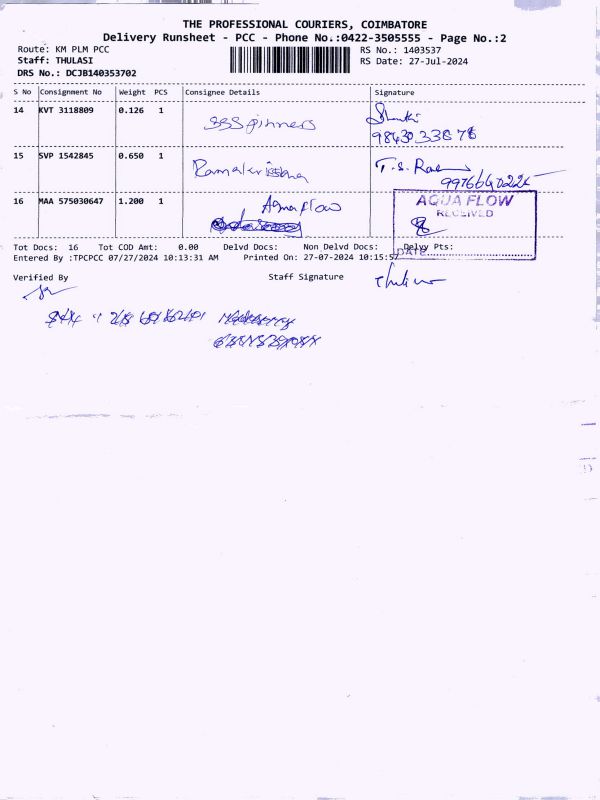 THE PROFESSIONAL COURIERS, COIMBATORE
Delivery Runsheet - PCC - Phone No.:0422-3505555 - Page No.:2
Route: KM PLM PCC RS No.: 1403537
Staff: THULASI RS Date: 27-Jul-2024
DRS No.: DCJB140353702
S No Consignment No Weight PCS Consignee Details Signature
14 KVT 3118809 0.126 1
15 SVP 1542845 0.650 1 Ramakrishna
16 MAA 575030647 1.200 1 Aqua Flow
AQUA FLOW
RECEIVED
DATE
Tot Docs: 16 Tot COD Amt: 0.00 Delvd Docs: Non Delvd Docs: Delvy Pts:
Entered By :TPCPCC 07/27/2024 10:13:31 AM Printed On: 27-07-2024 10:15:57
Verified By Staff Signature